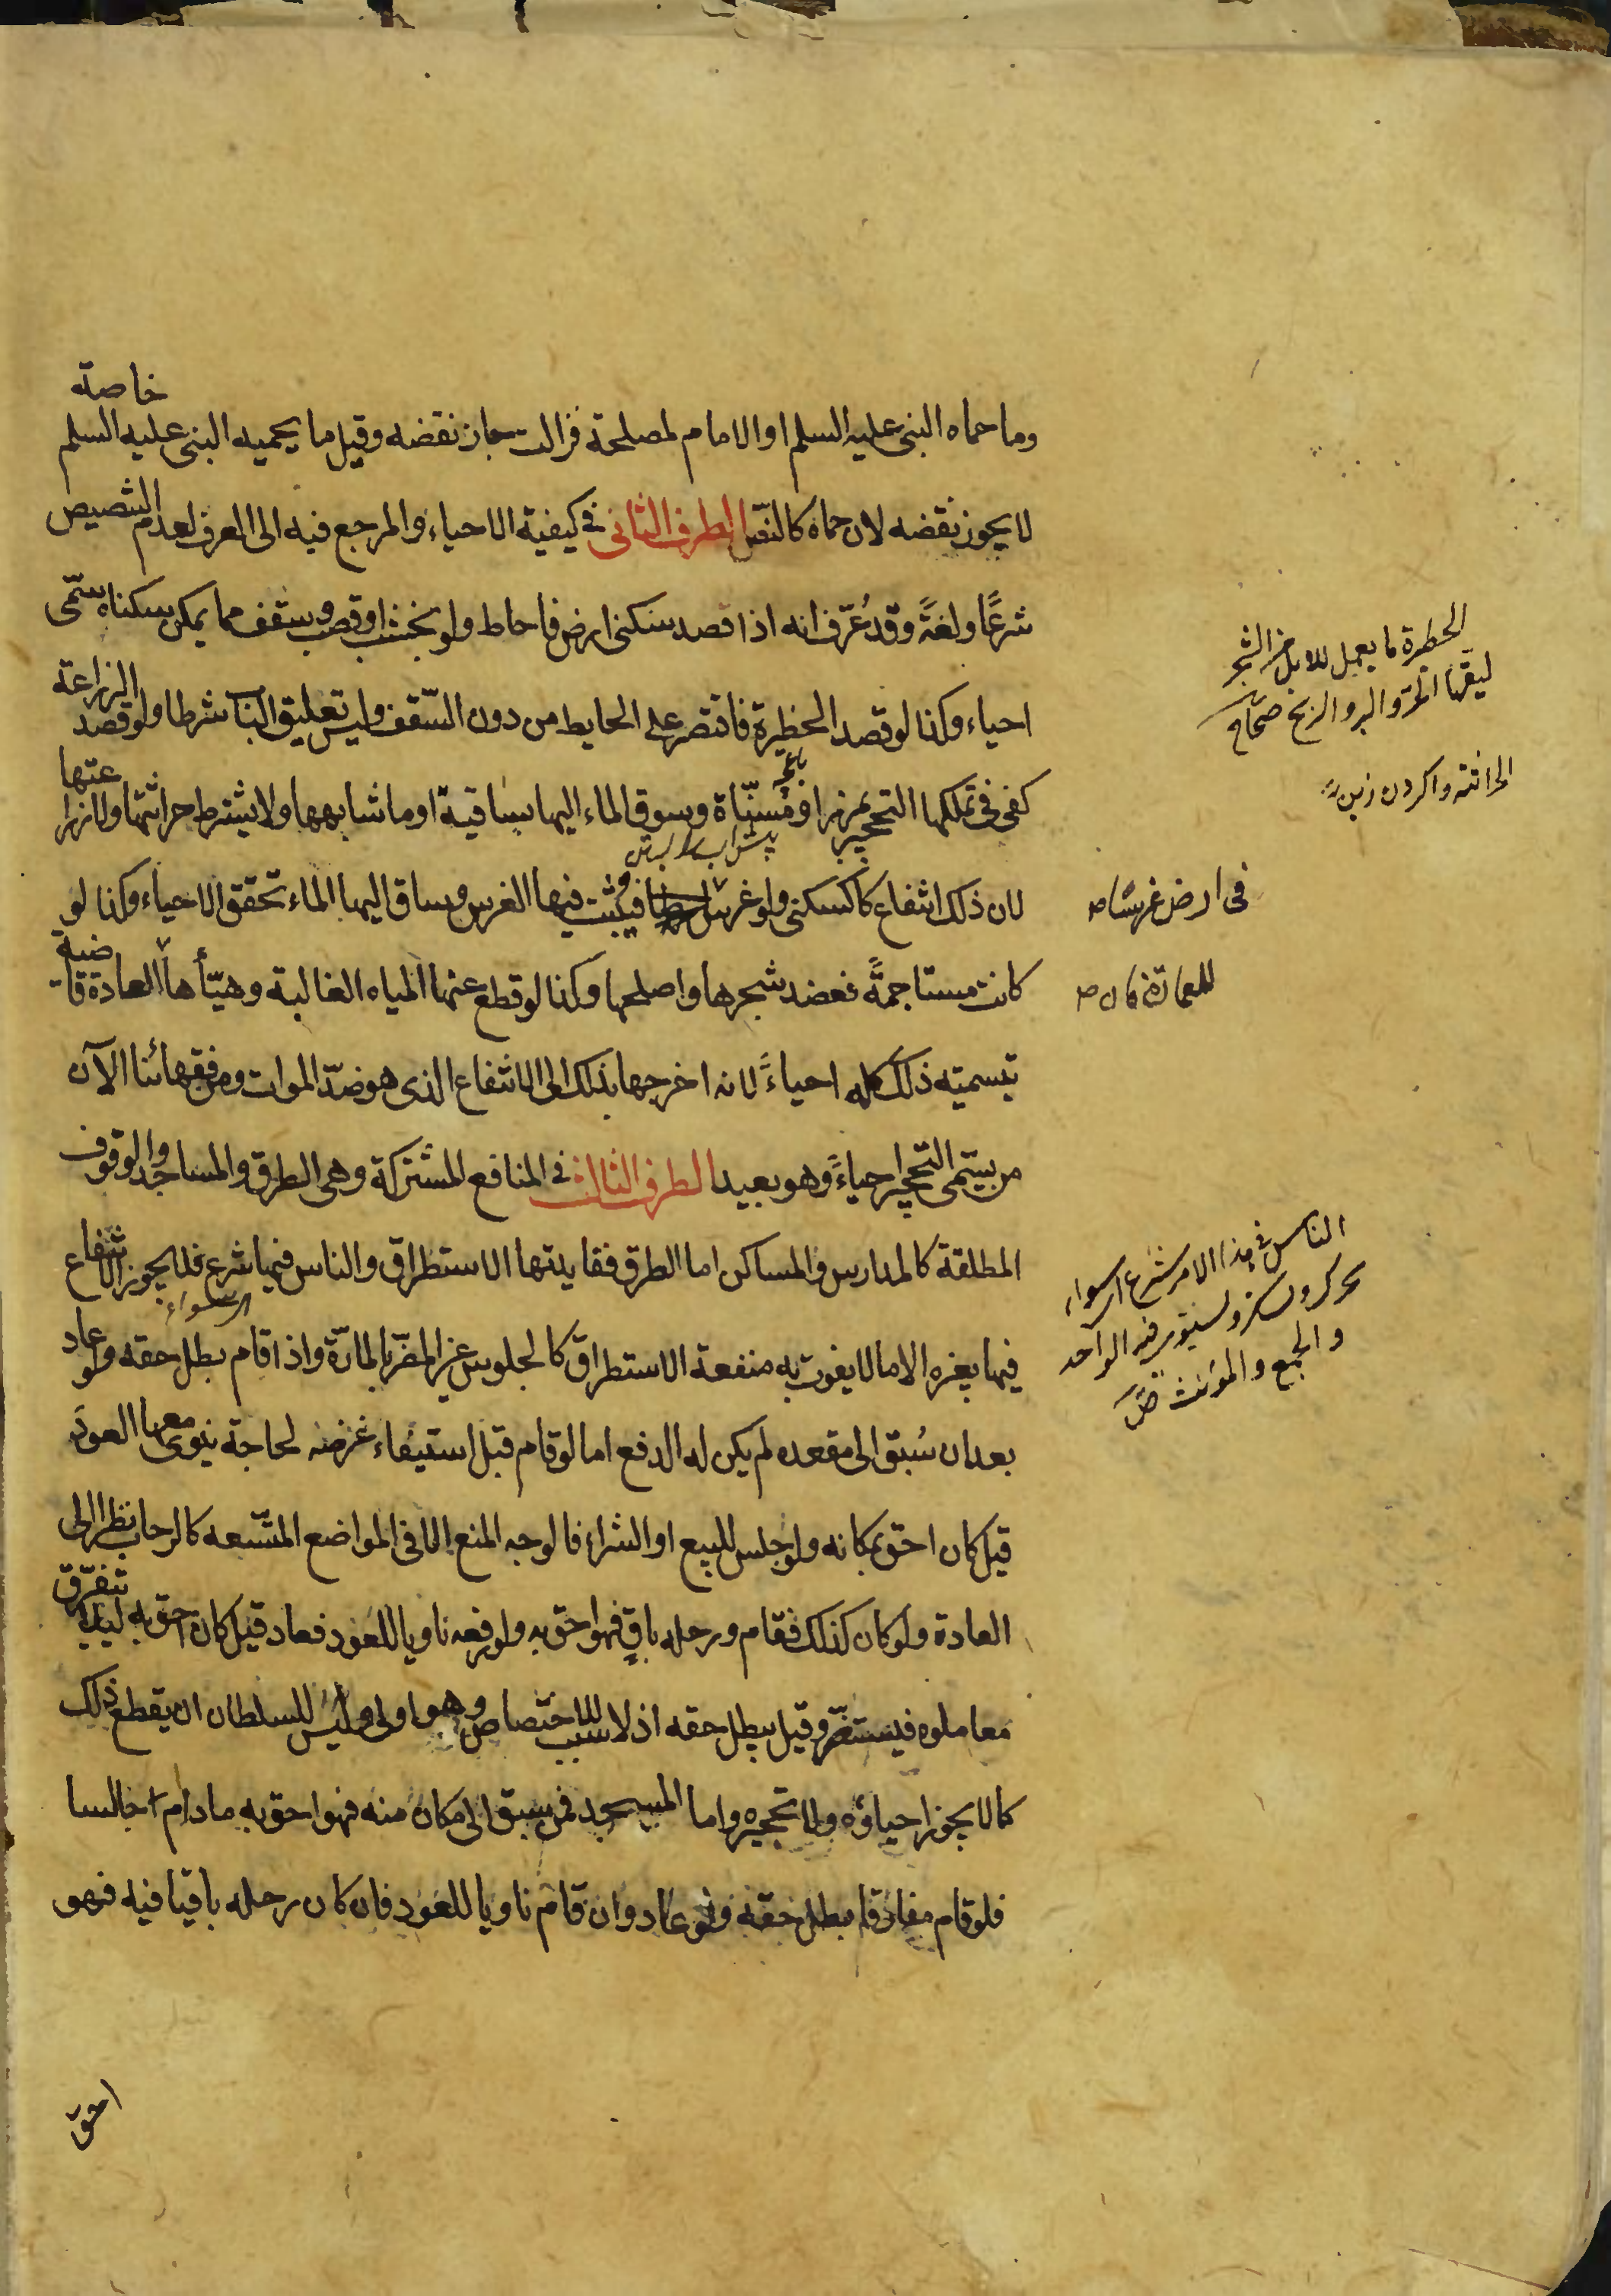 وما حماه النبى عليه السلم او الامام لمصلحة فزالت جاز نقضه وقيل ما يحميه النبى عليه السلم خاصة
لا يجوز نقضه لان حماه كالنصّ الطرف الثانى فى كيفية الاحياء والمرجع فيه الى العرف لعدم التنصيص
شرعًا ولغةً وقد عُرّف انه اذا قصد سكنى ارض فاحاط ولو بخشب او قصب وسقف مما يمكن سكناه سمّى
احياء وكذا لو قصد الحظيرة فاقتصر على الحايط من دون السّقف وليس تعليق الباب شرطا ولو قصد الزراعة
كفى فى تملكها التحجير بمرز او مُسنّاة وسوق الماء اليها بساقية او ما شابهها ولا يشترط حراثتها ولا زراعتها
لان ذلك انتفاع كالسكنى ولو غرس فينبت فيها الغرس وساق اليها الماء تحقق الاحياء وكذا لو
كانت مستاجمةً فعضد شجرها واصلحها وكذا لو قطع عنها المياه الغالبة وهيّأها العادة قاضية
بتسمية ذلك كله احياءً لانه اخرجها بذلك الى الانتفاع الذى هو ضدّ الموات ومن فقهائنا الآن
من يسمّى التحجير احياءً وهو بعيد الطرف الثالث فى المنافع المشتركة وهى الطرق والمساجد والوقوف
المطلقة كالمدارس والمساكن اما الطرق ففايدتها الاستطراق والناس فيها شرع فلا يجوز الانتفاع
اى سواء
فيها بغيره الا ما لا يفوت به منفعة الاستطراق كالجلوس غير المضرّ بالمارّة واذا قام بطل حقه ولو عاد
بعد ان سُبق الى مقعده لم يكن له الدفع اما لو قام قبل استيفاء غرضه لحاجة ينوى معها العود
قيل كان احق بمكانه ولو جلس للبيع او الشراء فالوجه المنع الا فى المواضع المتّسعه كالرحاب نظرا الى
العادة ولو كان كذلك فقام ورحله باقٍ فهو احق به ولو رفعه ناويا للعود فعاد قيل كان احق به ليلا يتفرّق
معاملوه فيستضرّ وقيل يبطل حقه اذ لا سبب للاختصاص وهو اولى وليس للسلطان ان يقطع ذلك
كما لا يجوز احياؤه ولا تحجيره واما المسجد فمن سبق الى مكان منه فهو احق به ما دام جالسا
فلو قام مفارقا بطل حقه ولو عاد وان قام ناويا للعود فان كان رحله باقيا فيه فهو
احق
الحظيرة ما يعمل للابل من الشجر
ليقيها الحرّ والبرد والريح صحاح
الحراثة واكردن زمين
فى ارض غرسًا صح
للعمارة فان صح
الناس فى هذا الامر شرع اى سواء
يحرك ويسكن ويستوى فيه الواحد
والجمع والمؤنث ص